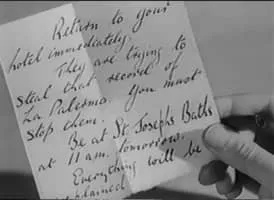 Return to your
hotel immediately.
They are trying to
steal that record of
La Palerma. You must
stop them.
Be at St. Josephs Baths
at 11 a.m. tomorrow.
Everything will be
explained